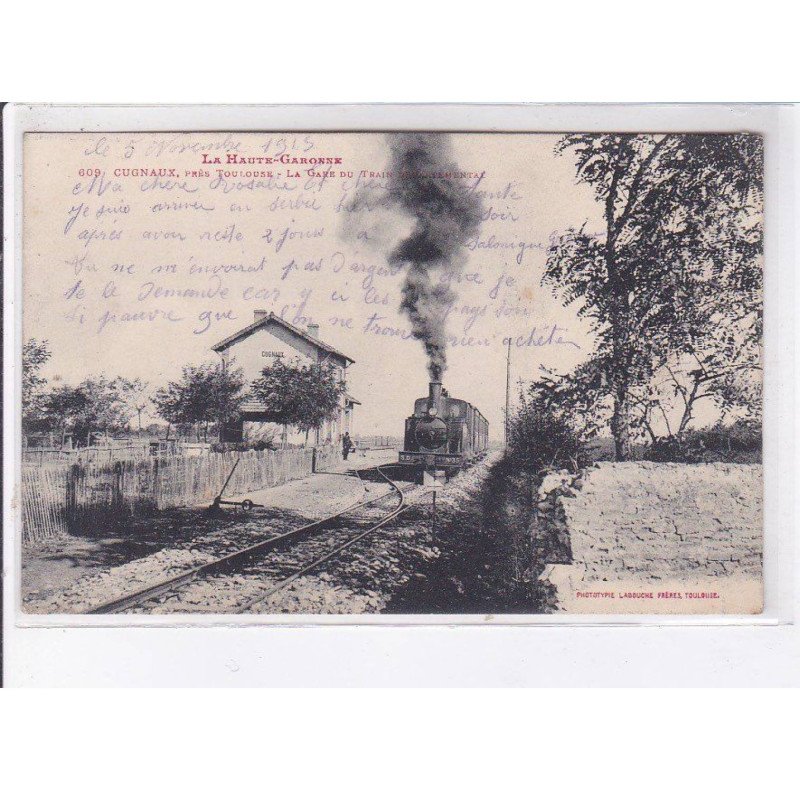 le 5 Novembre 1915
LA HAUTE-GARONNE
609. CUGNAUX, PRÈS TOULOUSE - LA GARE DU TRAIN DÉPARTEMENTAL
Ma chère Rosalie et chère
je suis arriver en Serbie hier soir
après avoir resté 2 jours à Salonique
Tu ne m'envoirat pas d'argent que je
te le demande car y ci les pays son
si pauvre que l'on ne trouve rien achéter
CUGNAUX
PHOTOTYPIE LABOUCHE FRÈRES, TOULOUSE.